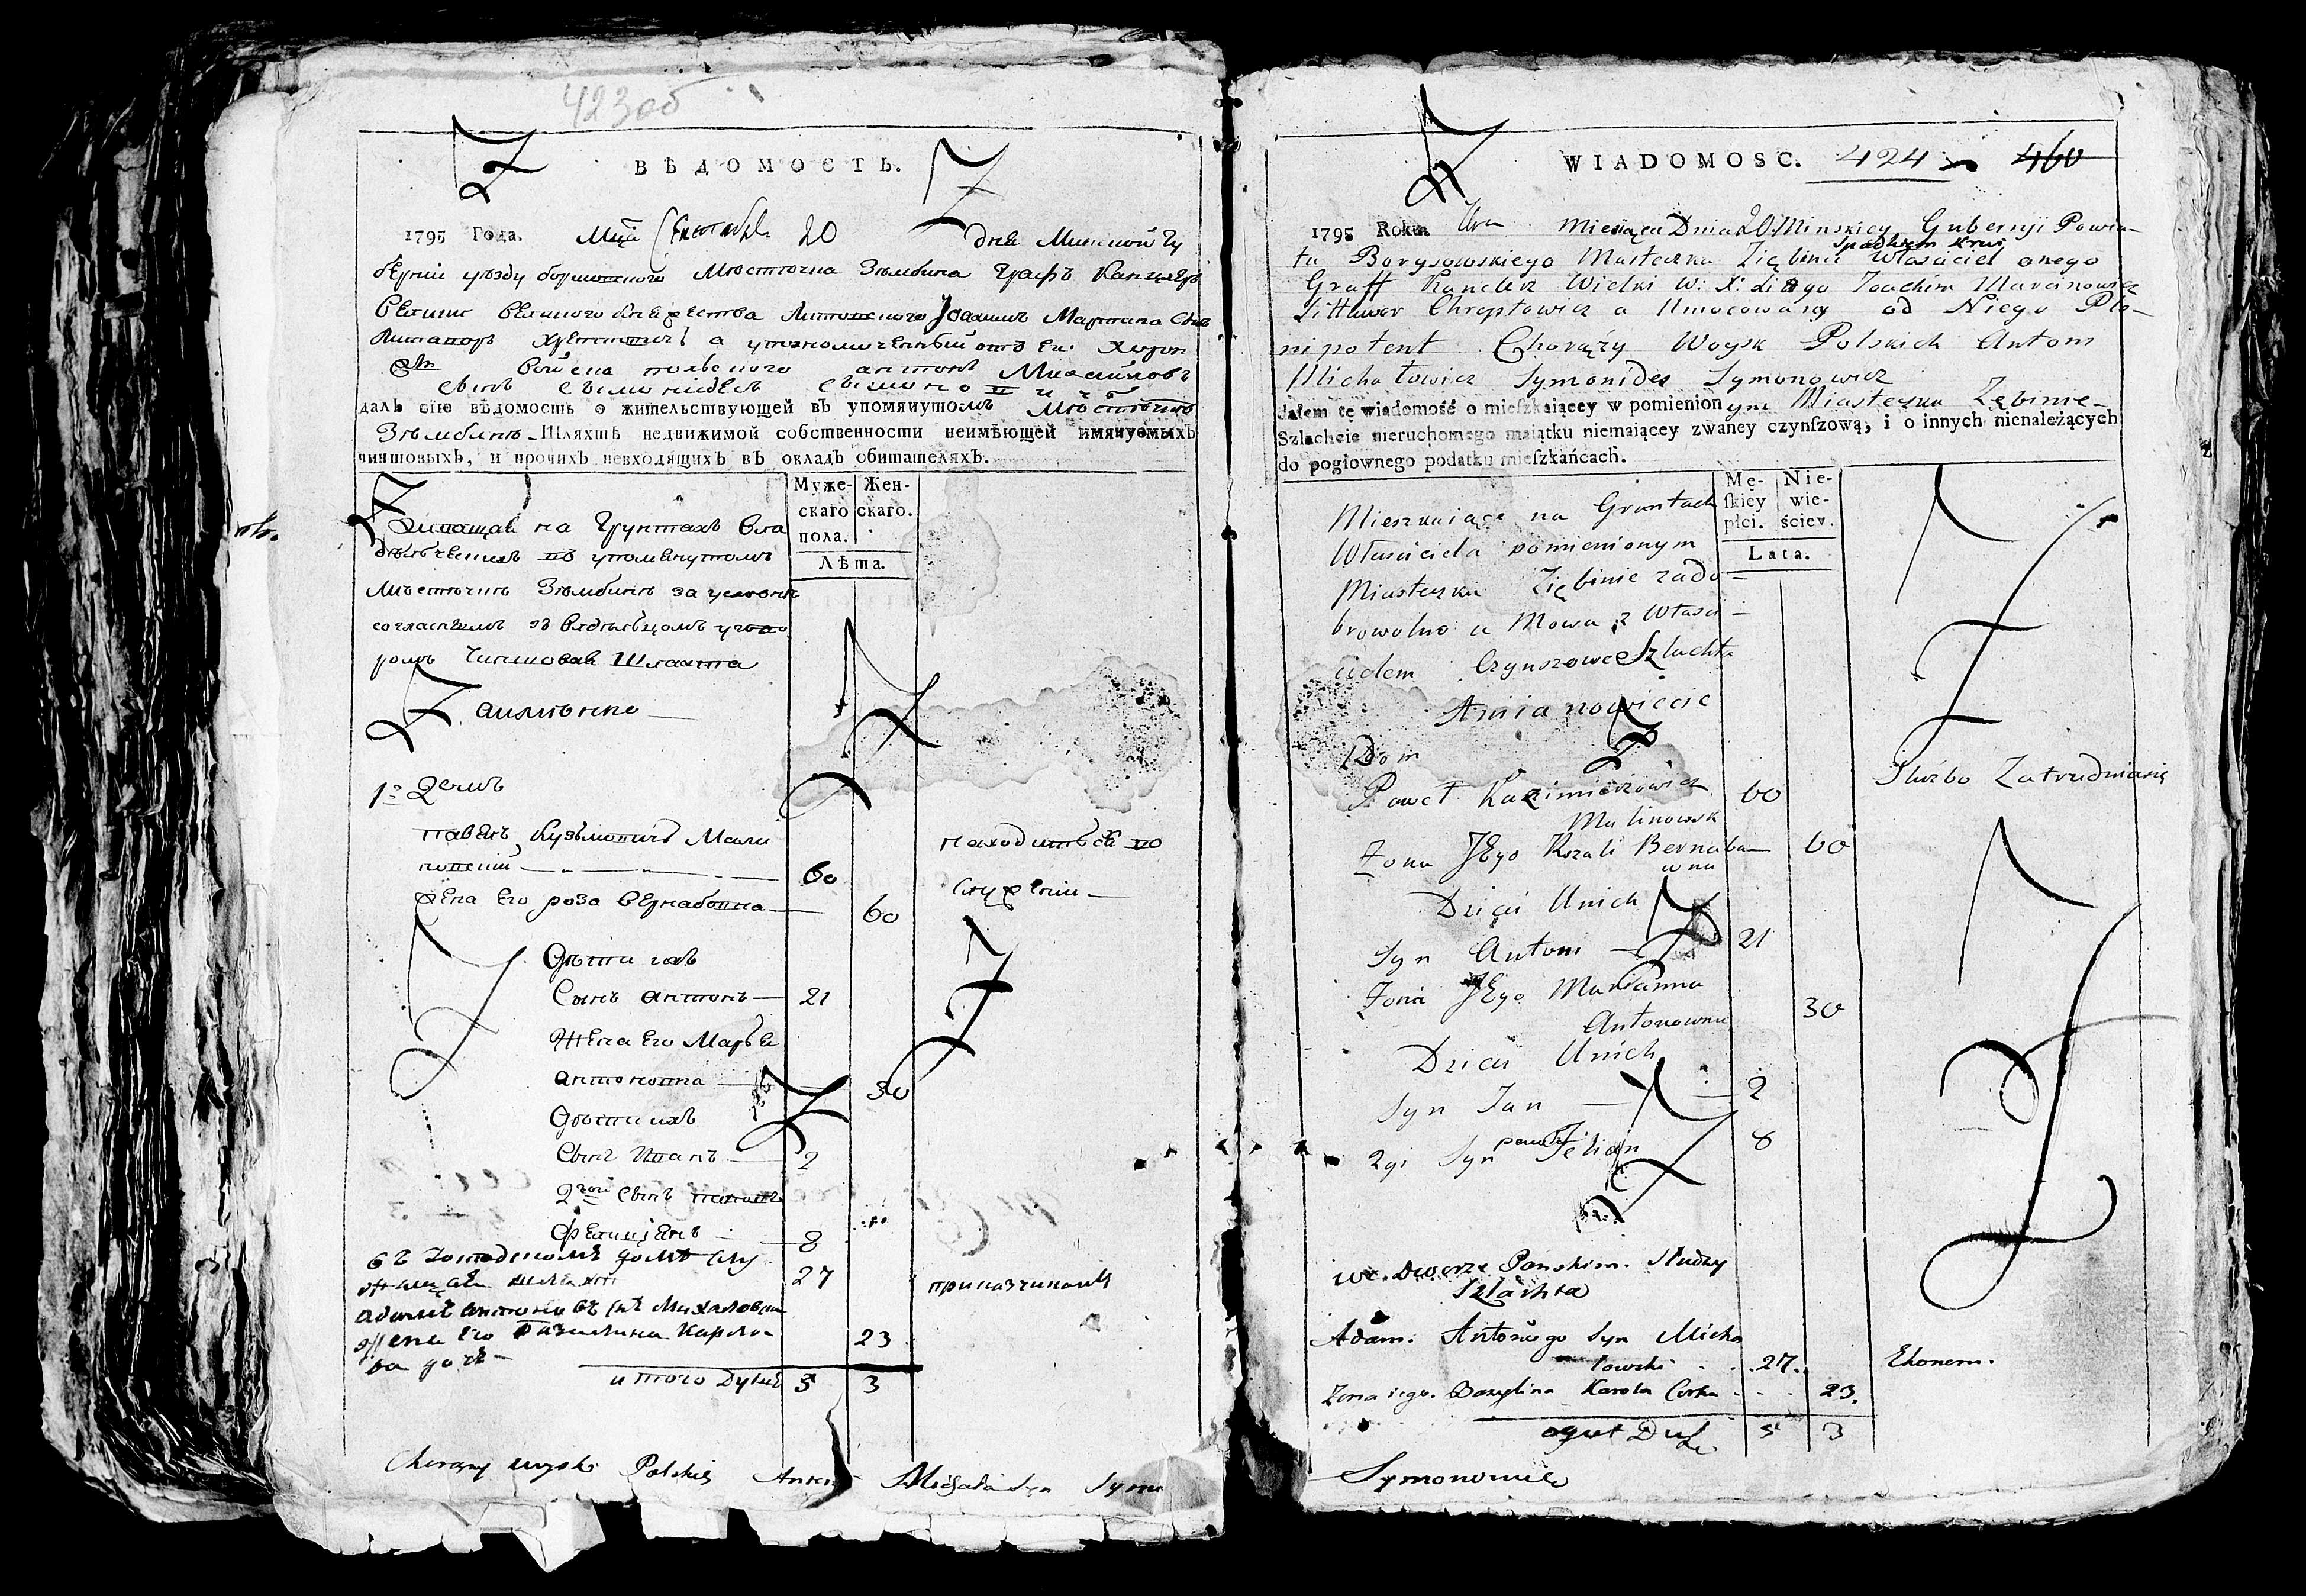 423об
ВѢДОМОСТЬ.
1795 Года. Мца Сентября 20 дня Минской Гу
бернiи уѣзду борисовского Мѣстечка Зѣмбина Графъ Канцлеръ
Великiй Великого Княжества Литовского Иоахимъ Мартина Сынъ
Литаворъ Хрептовичъ а уполномоченный отъ его Хорун
жiй Войска польского антонъ Михайловъ
Сынъ Сымонидесъ Сымоновичъ
далъ сiю вѣдомость о жительствующей въ упомянутомъ Мѣстечкѣ
Зѣмбинѣ Шляхтѣ недвижимой собственности неимѣющей имянуемыхъ
чиншовыхъ, и прочихъ невходящихъ въ окладъ обитателяхъ.
Муже-
скаго
пола.
Жен-
скаго.
Лѣта.
на Грунтахъ Вла
въ упомянутомъ
Мѣстечкѣ Зѣмбинѣ за
согласiемъ зъ Владѣльцомъ угово
ромъ Чиншовая Шляхта
а имѣнно
1й Домъ
павелъ Кузьмовичъ Мали
новскiй 60
Жена Его роза Бернабовна 60
находиться во
Служенiи
Дѣти ихъ
Сынъ антонъ 21
Жена Его Марья
антоновна 30
Дѣти ихъ
Сынъ Иванъ 2
2гой Сынъ
Фелицiянъ 8
въ Господскомъ домѣ слу
жащая шляхта 27 приказчикомъ
адамъ антоновъ сн Михаловски
жена Его Базилина Карло-
ва дочь 23
итого Душъ 5 3
Chorąży woysk Polskich Antoni Michała Syn Symo
WIADOMOSC. 424 460
1795 Roku Miesiąca Dnia 20 Minskiey Gubernji Powia-
tu Borysowskiego Miasteczka Ziębina Własciciel onego
Graff Kanclerz Wielki W: X: Littgo Joachim Marcinowicz
Littawor Chreptowicz a Umocowany od Niego Ple-
nipotent Chorąży Woysk Polskich Antoni
Michałowicz Symonides Symonowicz
dałem tę wiadomość o mieſzkaiącey w pomienionym Miasteczku Zębinie
Szlachcie nieruchomego maiątku niemaiącey zwaney czynſzową, i o innych nienależących
do pogłownego podatku mieſzkańcach.
Mę-
ſkiey
płci.
Nie-
wie-
ściey.
Lata.
Mieszkaiące na Gruntach
Własciciela pomienionym
Miasteczku Ziębinie za do-
browolną u Mową z Własci-
cielem Czynszowe Szlachta
A mianowicie
1 Dom
Paweł Kazimierzowicz 60 Służbo Zatrudniaią
Malinowsk
Zona JEgo Rozali Bernaba 60
wna
Dzieci Unich
Syn Antoni 21
Zona JEgo Marianna
Antonowna 30
Dzieci Unich
Syn Jan 2
2gi Syn Felician 8
we Dworze Panskim Służy
Szlachta
Adam Antoniego Syn Micha
łowski 27. Ekonom.
Zona iego Bazylina Karola Corka 23.
oguł Dusz 5 3
Symonowicz